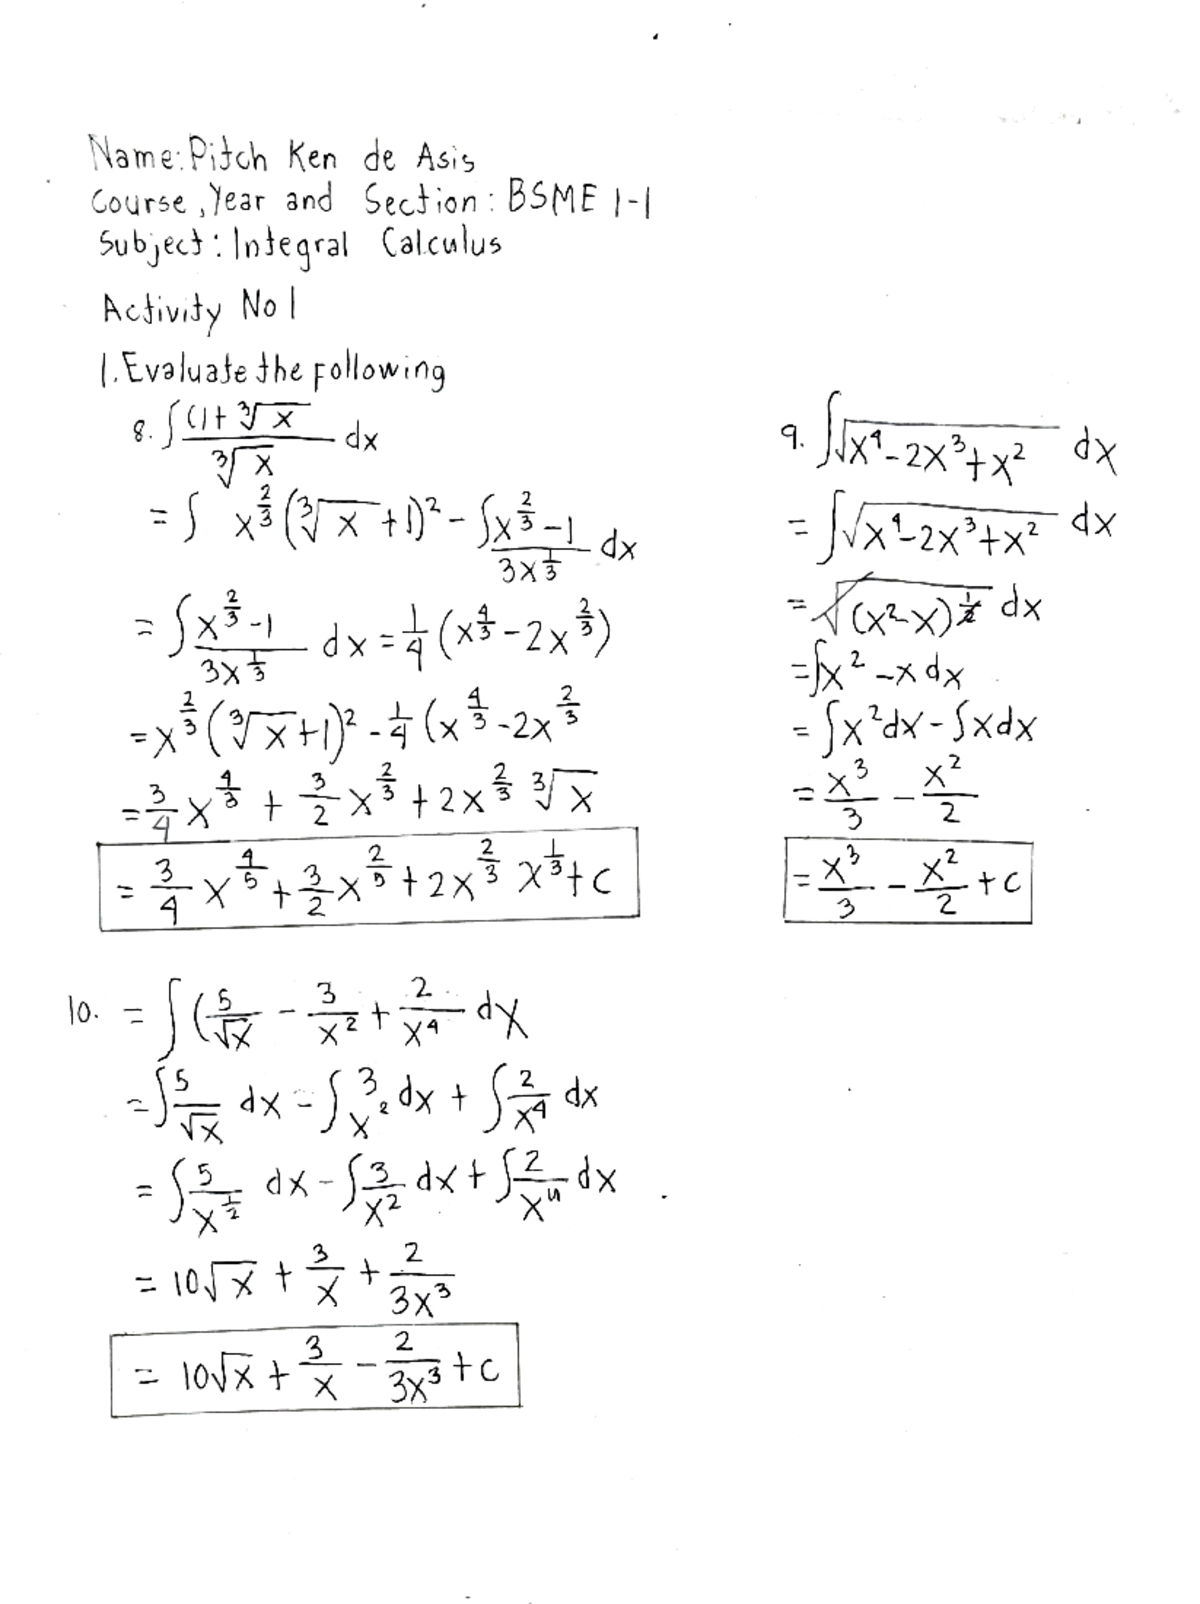 Name: Pitch Ken de Asis
Course, Year and Section: BSME 1-1
Subject: Integral Calculus
Activity No 1
1. Evaluate the following
8. ∫ (1+∛x / ∛x dx
= ∫ x^(2/3) (∛x + 1)² - ∫ x^(2/3) - 1 / 3x^(1/3) dx
= ∫ x^(2/3) - 1 / 3x^(1/3) dx = 1/4 (x^(4/3) - 2x^(2/3))
= x^(2/3) (∛x + 1)² - 1/4 (x^(4/3) - 2x^(2/3)
= 3/4 x^(4/3) + 3/2 x^(2/3) + 2x^(2/3) ∛x
= 3/4 x^(4/5) + 3/2 x^(2/5) + 2x^(2/3) x^(1/3) + c
9. ∫ √(x⁴ - 2x³ + x²) dx
= ∫ √(x⁴ - 2x³ + x²) dx
= √((x² - x)^(1/2)) dx
= ∫ x² - x dx
= ∫ x² dx - ∫ x dx
= x³/3 - x²/2
= x³/3 - x²/2 + c
10. = ∫ (5/√x - 3/x² + 2/x⁴ dx
= ∫ 5/√x dx - ∫ 3/x² dx + ∫ 2/x⁴ dx
= ∫ 5/x^(1/2) dx - ∫ 3/x² dx + ∫ 2/x⁴ dx
= 10√x + 3/x + 2/3x³
= 10√x + 3/x - 2/3x³ + c